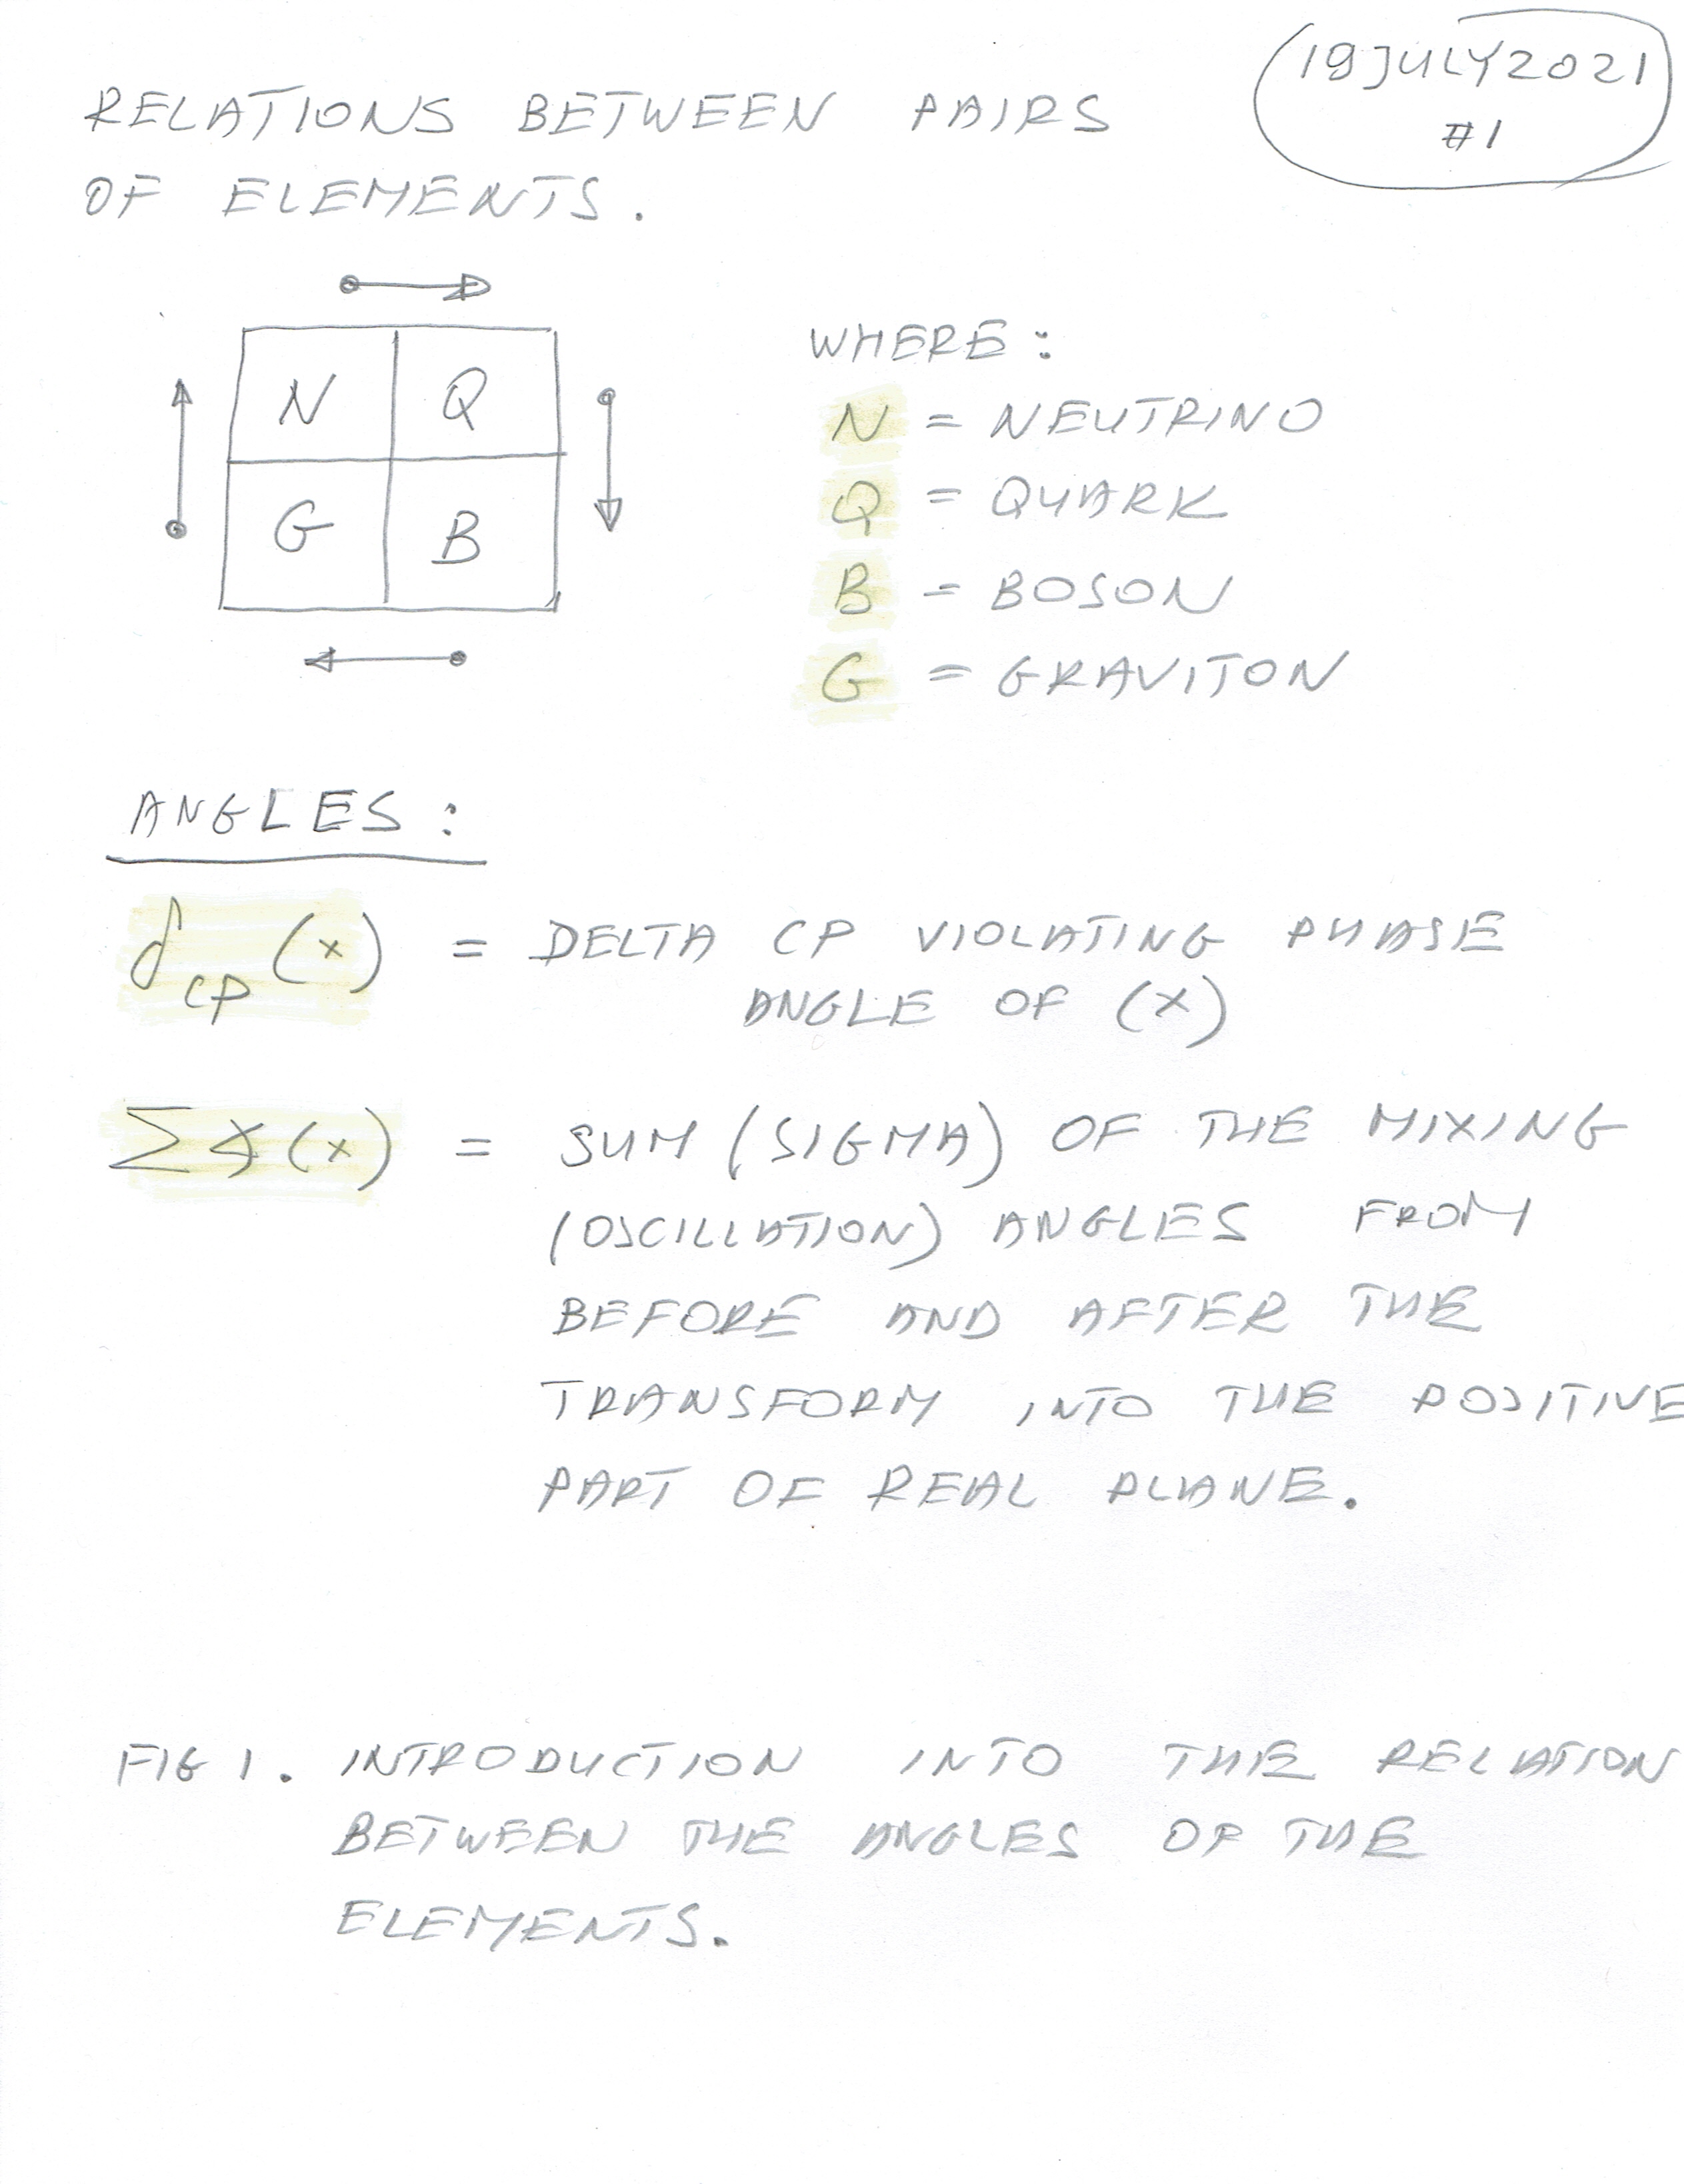 19JULY2021
#1
RELATIONS BETWEEN PAIRS
OF ELEMENTS.
N Q
G B
WHERE:
N = NEUTRINO
Q = QUARK
B = BOSON
G = GRAVITON
ANGLES:
δCP (x) = DELTA CP VIOLATING PHASE
ANGLE OF (X)
∑∢(x) = SUM (SIGMA) OF THE MIXING
(OSCILLATION) ANGLES FROM
BEFORE AND AFTER THE
TRANSFORM INTO THE POSITIVE
PART OF REAL PLANE.
FIG 1. INTRODUCTION INTO THE RELATION
BETWEEN THE ANGLES OF THE
ELEMENTS.